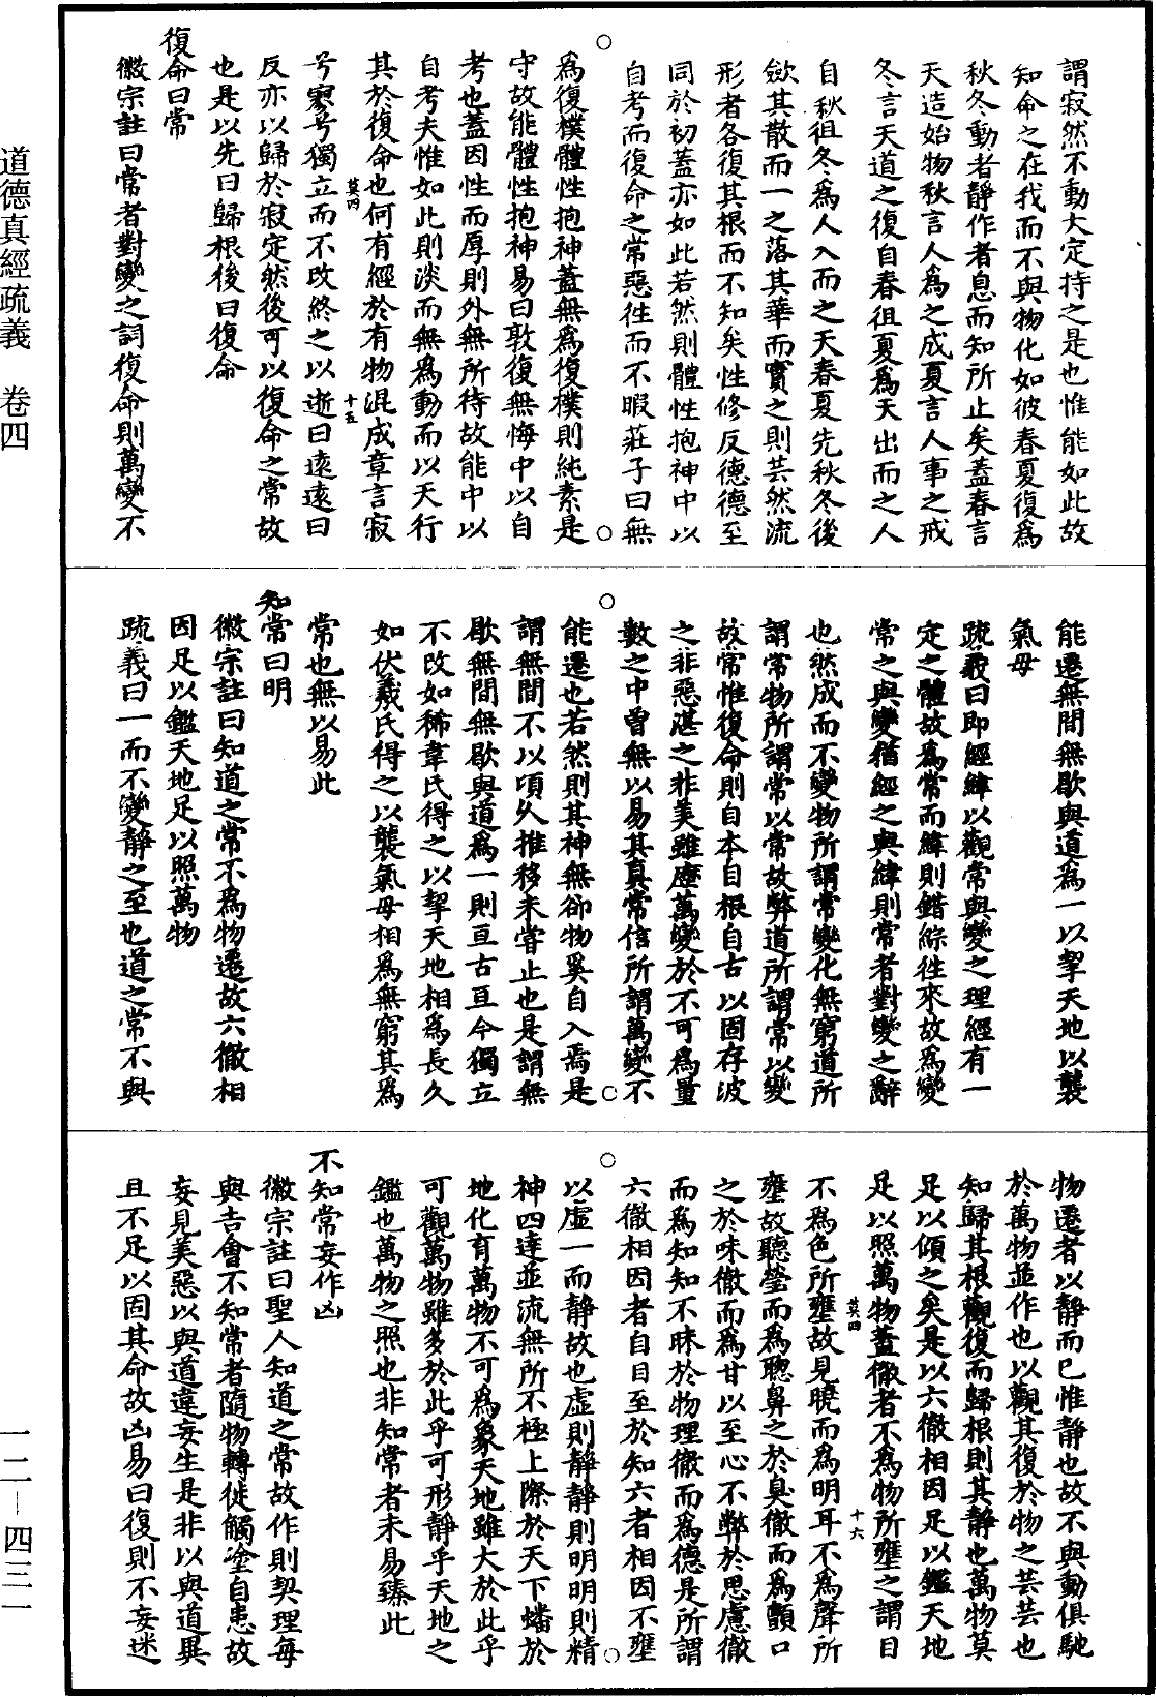 謂寂然不動大定持之是也惟能如此故
知命之在我而不與物化如彼春夏復爲
秋冬動者靜作者息而知所止矣蓋春言
天造始物秋言人爲之成夏言人事之戒
冬言天道之復自春徂夏爲天出而之人
自秋徂冬爲人入而之天春夏先秋冬後
斂其散而一之落其華而實之則芸然流
形者各復其根而不知矣性修反德德至
同於初蓋亦如此若然則體性抱神中以
自考而復命之常惡徃而不暇莊子曰無
爲復樸體性抱神蓋無爲復樸則純素是
守故能體性抱神易曰敦復無悔中以自
考也蓋因性而厚則外無所待故能中以
自考夫惟如此則淡而無爲動而以天行
其於復命也何有經於有物混成章言寂
莫四
十五
兮寥兮獨立而不改終之以逝曰遠遠曰
反亦以歸於寂定然後可以復命之常故
也是以先曰歸根後曰復命
復命曰常
徽宗註曰常者對變之詞復命則萬變不
能遷無間無歇與道為一以挈天地以襲
氣母
疏義曰即經緯以觀常與變之理經有一
定之體故爲常而緯則錯綜徃來故為變
常之與變猶經之與緯則常者對變之辭
也然成而不變物所謂常變化無窮道所
謂常物所謂常以常故弊道所謂常以變
故常惟復命則自本自根自古以固存波
之非惡湛之非美雖歷萬變於不可為量
數之中曾無以易其真常信所謂萬變不
能遷也若然則其神無郤物奚自入焉是
謂無間不以頃久推移未嘗止也是謂無
歇無間無歇與道爲一則亘古亘今獨立
不改如狶韋氏得之以挈天地相爲長久
如伏羲氏得之以襲氣母相爲無窮其爲
常也無以易此
知常曰明
徽宗註曰知道之常不爲物遷故六徹相
因足以鑑天地足以照萬物
疏義曰一而不變靜之至也道之常不與
物遷者以靜而已惟靜也故不與動俱馳
於萬物並作也以觀其復於物之芸芸也
知歸其根觀復而歸根則其靜也萬物莫
足以傾之矣是以六徹相因足以鑑天地
足以照萬物蓋徹者不為物所壅之謂目
莫四
十六
不爲色所壅故見曉而爲明耳不爲聲所
壅故聽瑩而爲聰鼻之於臭徹而爲顫口
之於味徹而爲甘以至心不弊於思慮徹
而爲知知不昧於物理徹而爲德是所謂
六徹相因者自目至於知六者相因不壅
以虛一而靜故也虛則靜靜則明明則精
神四達並流無所不極上際於天下蟠於
地化育萬物不可爲象天地雖大於此乎
可觀萬物雖多於此乎可形靜乎天地之
鑑也萬物之照也非知常者未易臻此
不知常妄作凶
徽宗註曰聖人知道之常故作則契理每
與吉會不知常者隨物轉徙觸塗自患故
妄見美惡以與道違妄生是非以與道異
且不足以固其命故凶易曰復則不妄迷
道德真經疏義　卷四
一二—四三一